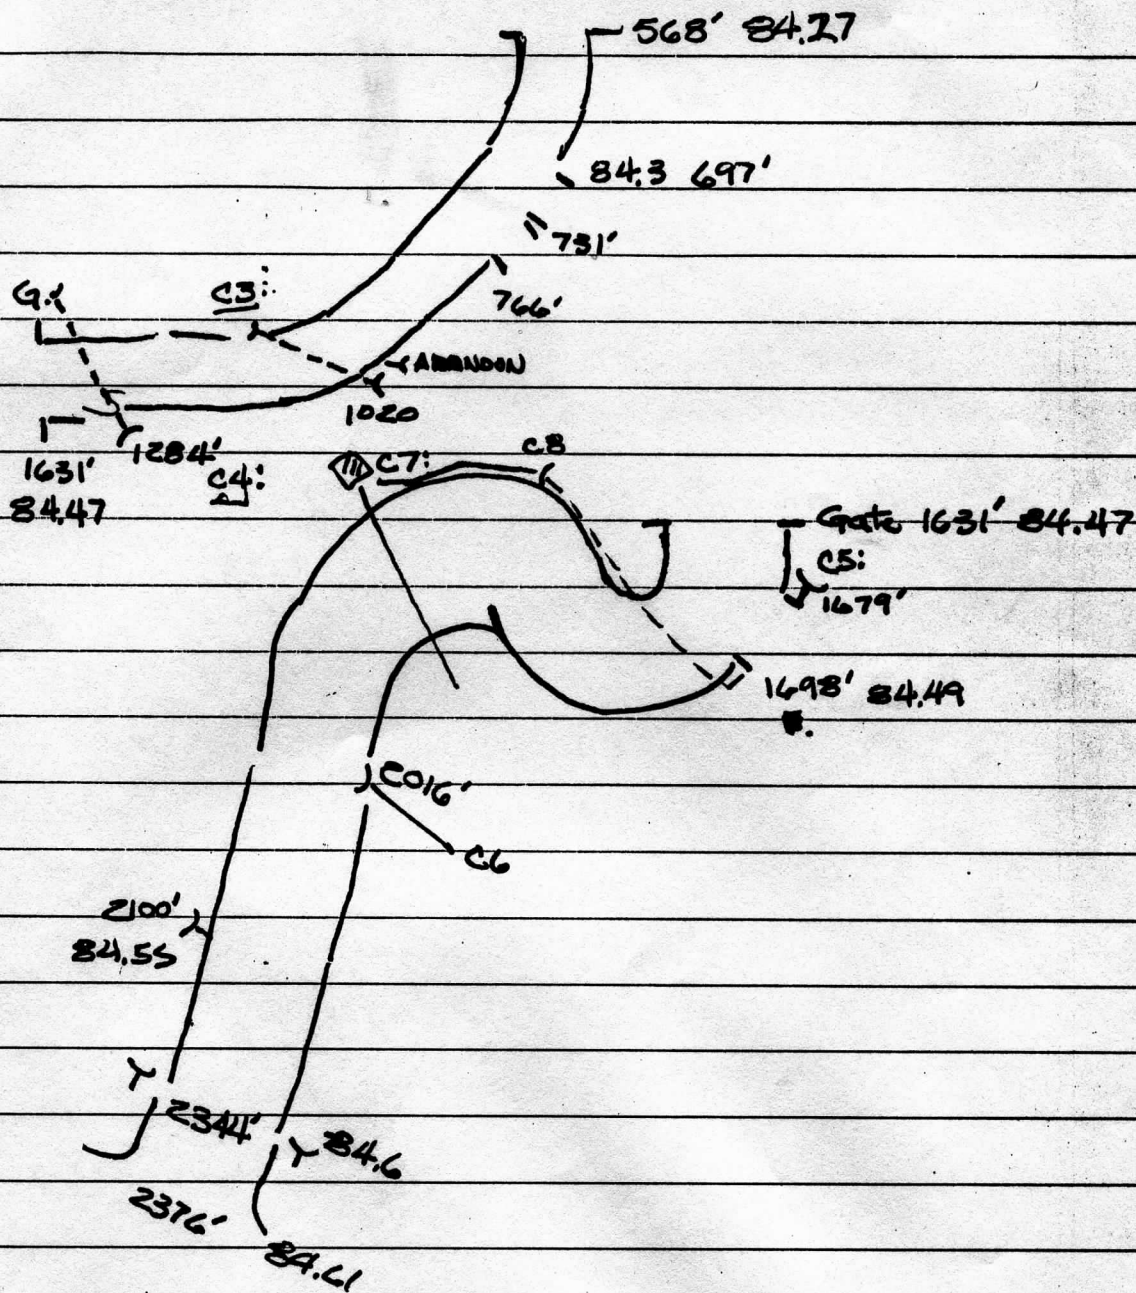 568' 84.27
84.3 697'
731'
766'
C3:
ABANDON
1020
1284'
1631'
84.47
C4:
C7:
C8
Gate 1631' 84.47
C5:
1679'
1698' 84.49
2016'
C6
2100'
84.55
2344'
84.6
2376'
84.61